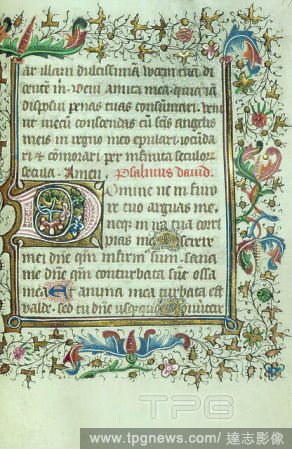 ar illam dulcissimā vocem tuā di
cente in. Veni amica mea quia iā
disposui penas tuas consumari. veni
ut mecū conscendas cū scīs angelis
meis in regno meo epulari iocūda
ri et comorari per infinita seculor
secula. Amen. Psalmus david.
Domine ne in furo
re tuo arguas me.
neqȝ in ira tua cor
ripias me. Miserere
mei dnē qm̄ infirmꝰ sum. sana
me dnē qm̄ conturbata sūt ossa
mea. Et anima mea turbata est
valde. sed tu dnē usquequo Convertere
TPG
www.tpgnews.com / 達志影像